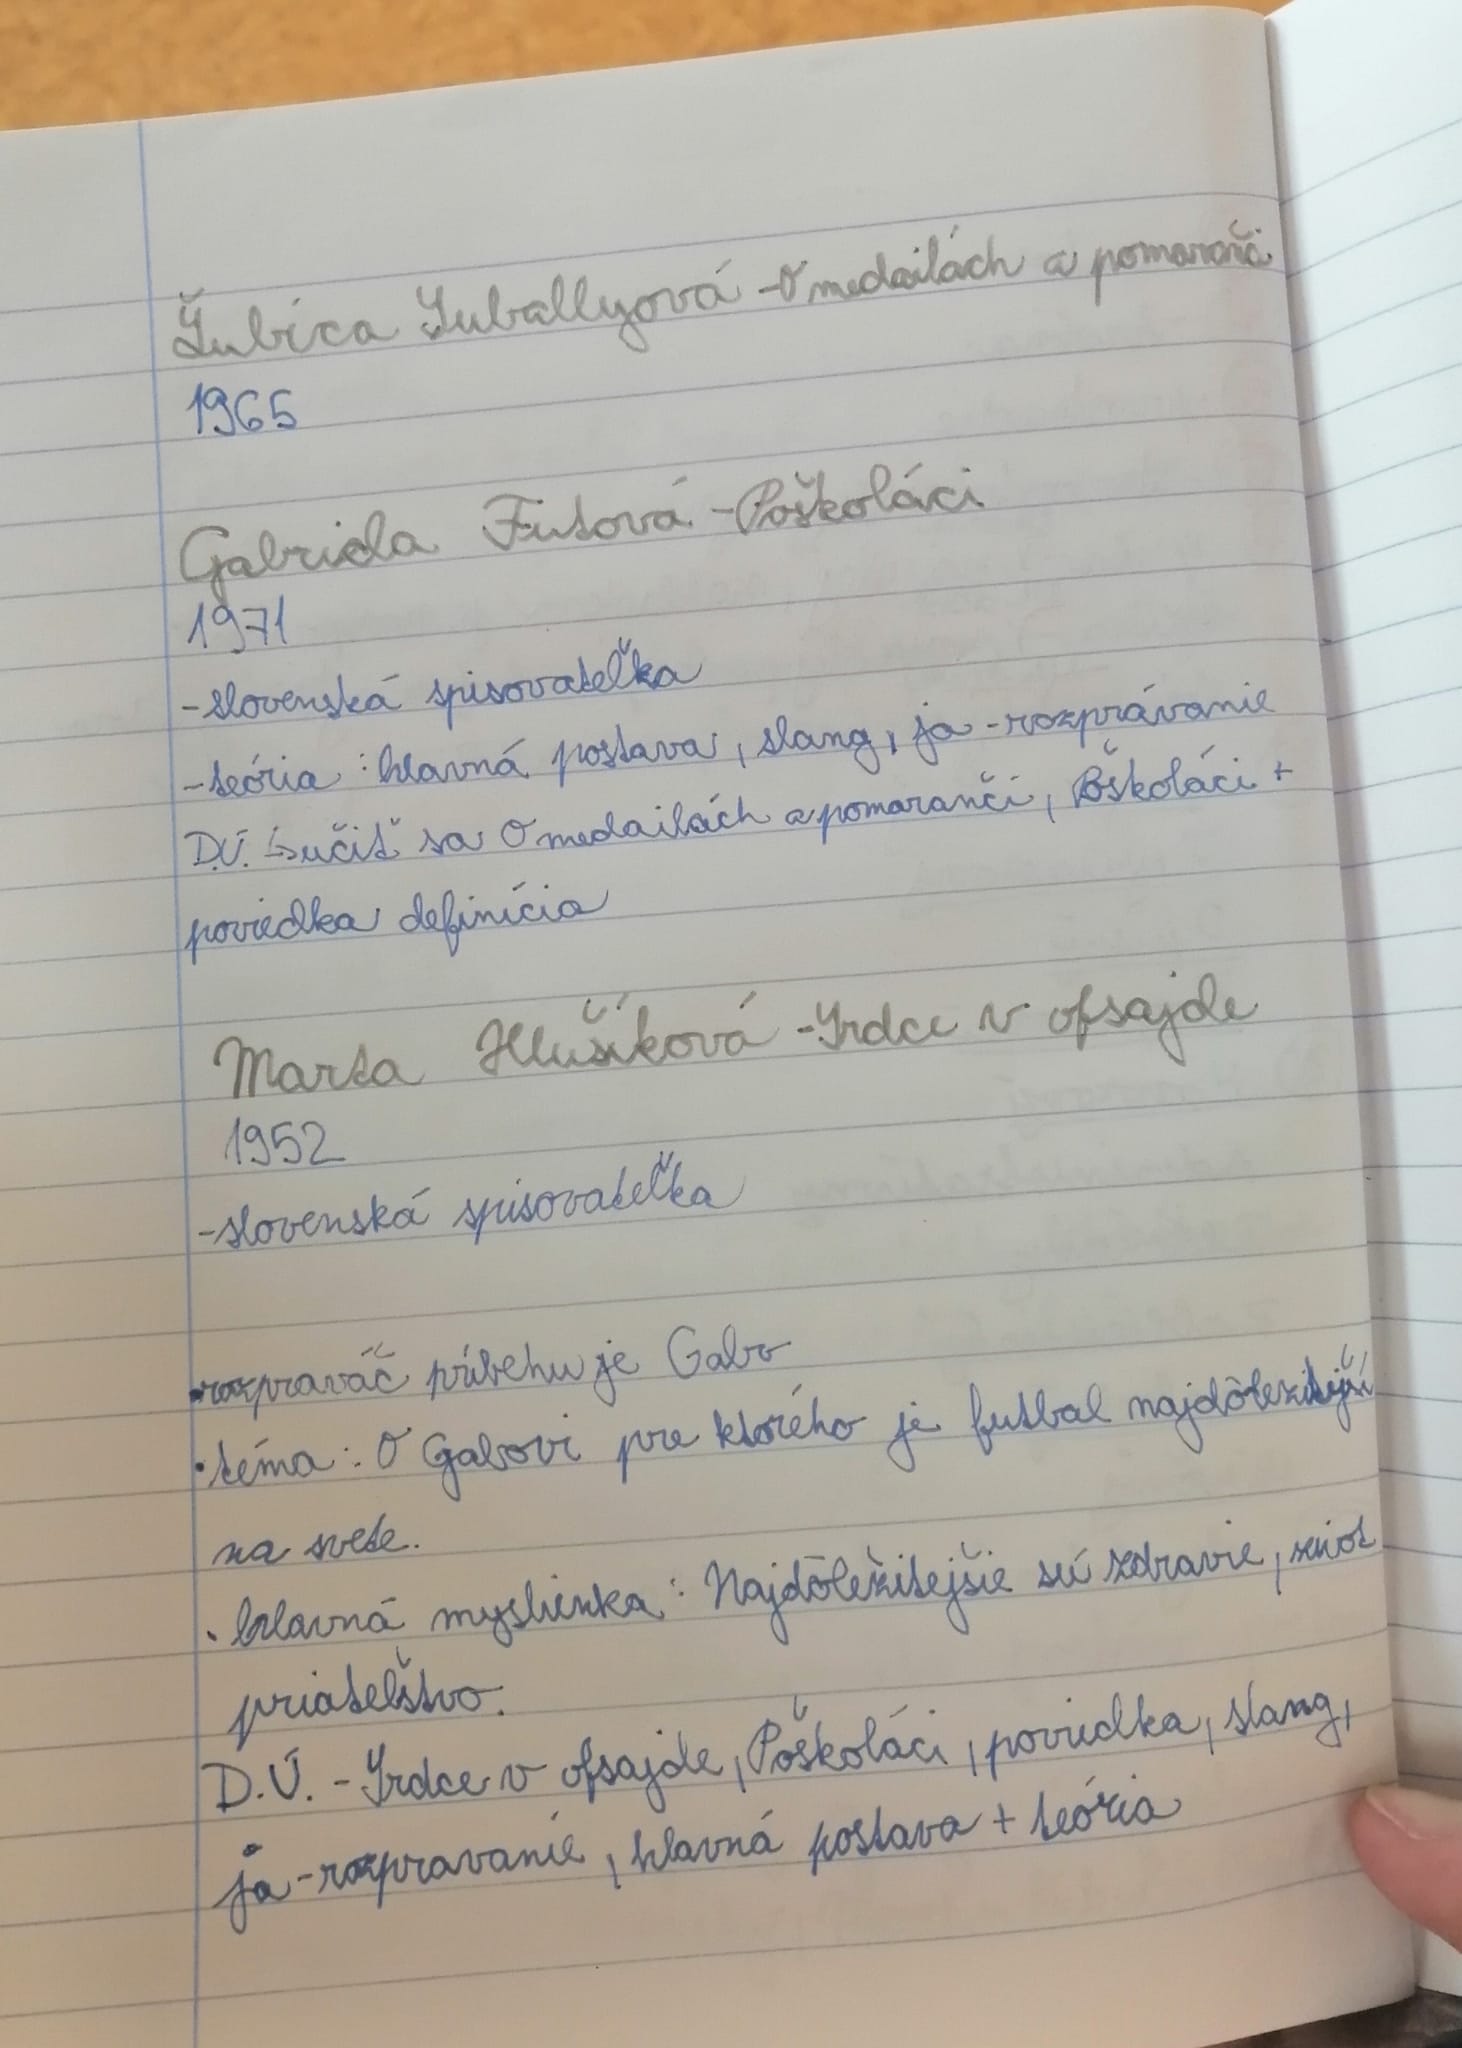 Ľubica Suballyová - O medailách a pomaranči
1965
Gabriela Futová - Poškoláci
1971
- slovenská spisovateľka
- teória : hlavná postava, slang, ja - rozprávanie
D.Ú. ↳ učiť sa O medailách a pomaranči, Poškoláci +
poviedka definícia
Marta Hlušíková - Srdce v ofsajde
1952
- slovenská spisovateľka
• rozpraváč príbehu je Gabo
• téma : O Gabovi pre ktorého je futbal najdôležitejší
na svete.
• hlavná myslienka : Najdôležitejšie sú zdravie,
priatelštvo.
D.Ú. - Srdce v ofsajde, Poškoláci, poviedka, slang,
ja - rozpravanie, hlavná postava + teória